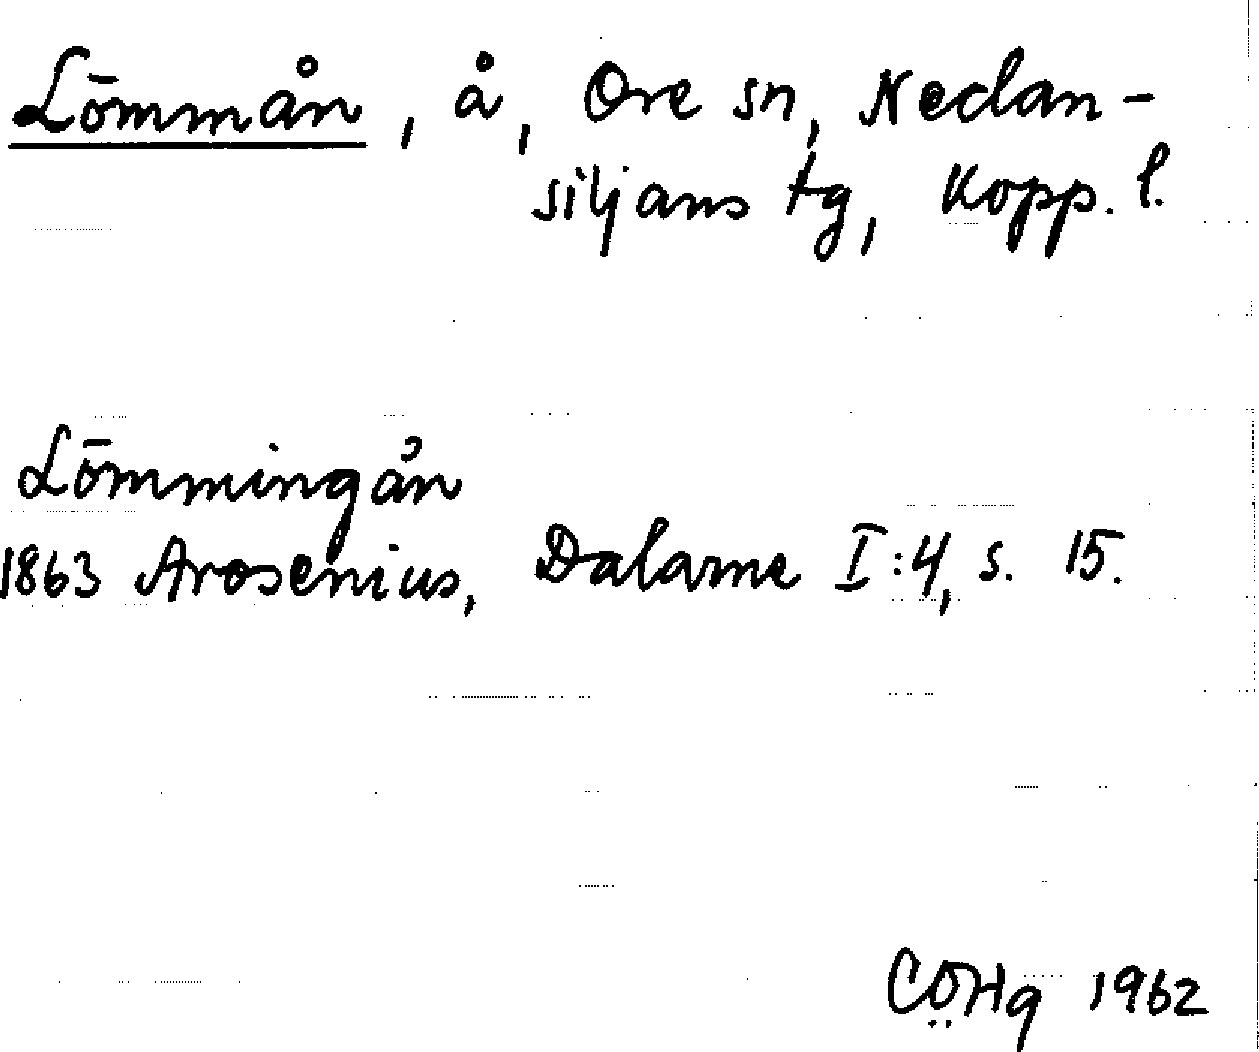 Lömmån, å, Ore sn, Nedan-
siljans tg, Kopp. l.
Lömmingån
1863 Arosenius, Dalarne I:4, s. 15.
CÖHg 1962